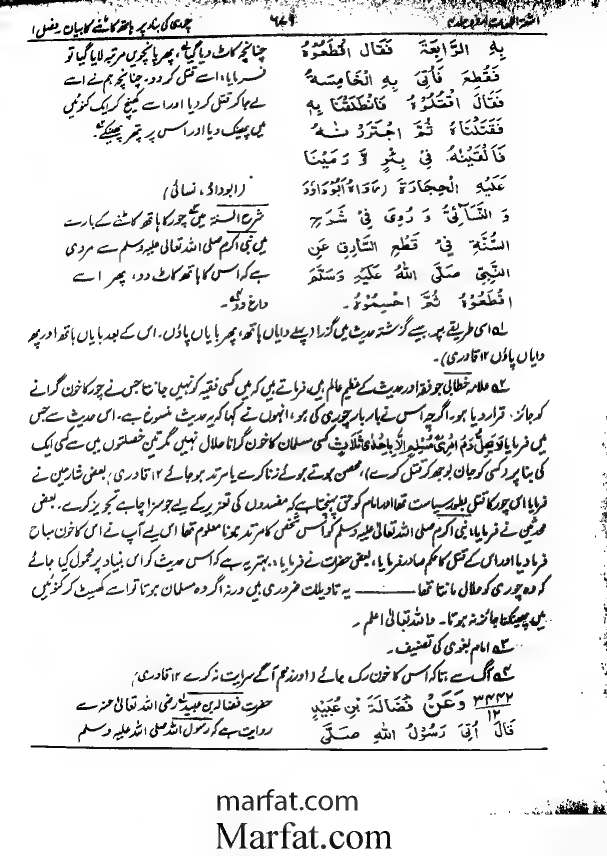 اشعۃ اللمعات اردو جلد
۶۸۹
چوری کی بنا پر ہاتھ کاٹنے کا بیان، فصل ۱
بِهِ الرَّابِعَةَ فَقَالَ اقْطَعُوْهُ
فَقُطِعَ فَأُتِيَ بِهِ الْخَامِسَةَ
فَقَالَ اقْتُلُوْهُ فَانْطَلَقْنَا بِهٖ
فَقَتَلْنَاهُ ثُمَّ اجْتَرَرْنَاهُ
فَاَلْقَيْنٰهُ فِيْ بِئْرٍ وَّ رَمَيْنَا
عَلَيْهِ الْحِجَارَةَ (رَوَاهُ اَبُوْدَاوٗدَ
وَ النَّسَائِيُّ وَ رُوِيَ فِيْ شَرْحِ
السُّنَّةِ فِيْ قَطْعِ السَّارِقِ عَنِ
النَّبِيِّ صَلَّى اللهُ عَلَيْهِ وَسَلَّمَ
اقْطَعُوْهُ ثُمَّ احْسِمُوْهُ۔
چنانچہ کاٹ دیا گیا، پھر پانچویں مرتبہ لایا گیا تو
فرمایا، اسے قتل کر دو۔ چنانچہ ہم نے اسے
لے جا کر قتل کر دیا اور اسے کھینچ کر ایک کنوئیں
میں پھینک دیا اور اس پر پتھر پھینکے۔
(ابوداؤد، نسائی)
شرح السنۃ میں چور کا ہاتھ کاٹنے کے بارے
میں نبی اکرم صلی اللہ تعالیٰ علیہ وسلم سے مروی
ہے کہ اس کا ہاتھ کاٹ دو، پھر اسے
داغ دو۔
۱ اسی طریقے پر جیسے گزشتہ حدیث میں گزرا (پہلے دایاں ہاتھ، پھر بایاں پاؤں۔ اس کے بعد بایاں ہاتھ اور پھر
دایاں پاؤں ۱۲ قادری)۔
۲ علامہ خطابی جو فقہ اور حدیث کے عظیم عالم ہیں، فرماتے ہیں کہ میں کسی فقیہ کو نہیں جانتا جس نے چور کا خون گرانے
کو جائز قرار دیا ہو۔ اگرچہ اس نے بار بار چوری کی ہو، انہوں نے کہا کہ یہ حدیث منسوخ ہے۔ اس حدیث سے جس
میں فرمایا دَمُ امْرِئٍ مُّسْلِمٍ اِلَّا بِاِحْدٰى ثَلَاثٍ کسی مسلمان کا خون گرانا حلال نہیں مگر تین خصلتوں میں سے کسی ایک
کی بنا پر (کسی کو جان بوجھ کر قتل کرے)، محصن ہوتے ہوئے زنا کرے یا مرتد ہو جائے ۱۲ قادری) بعض شارحین نے
فرمایا اس چور کا قتل بطور سیاست تھا اور امام کو حق پہنچتا ہے کہ مفسدوں کی تعزیر کے لیے جو سزا چاہے تجویز کرے۔ بعض
محدثین نے فرمایا، نبی اکرم صلی اللہ تعالیٰ علیہ وسلم کو اس شخص کا مرتد ہونا معلوم تھا اس لیے آپ نے اس کا خون مباح
فرما دیا اور اس کے قتل کا حکم صادر فرمایا، بعض حضرت نے فرمایا، بہتر یہ ہے کہ اس حدیث کو اس بنیاد پر محمول کیا جائے
کہ وہ چوری کو حلال مانتا تھا ——— یہ تاویلات ضروری ہیں ورنہ اگر وہ مسلمان ہوتا تو اسے گھسیٹ کر کنوئیں
میں پھینکنا جائز نہ ہوتا۔ واللہ تعالیٰ اعلم۔
۳ امام بغوی کی تصنیف۔
۴ آگ سے، تاکہ اس کا خون رک جائے (اور زخم آگے سرایت نہ کرے ۱۲ قادری)
۳۴۴۲/۱۲ وَعَنْ فَضَالَةَ بْنِ عُبَيْدٍ
قَالَ اُتِيَ رَسُوْلُ اللهِ صَلَّى
حضرت فضالہ بن عبید رضی اللہ تعالیٰ عنہ سے
روایت ہے کہ رسول اللہ صلی اللہ علیہ وسلم
marfat.com
Marfat.com